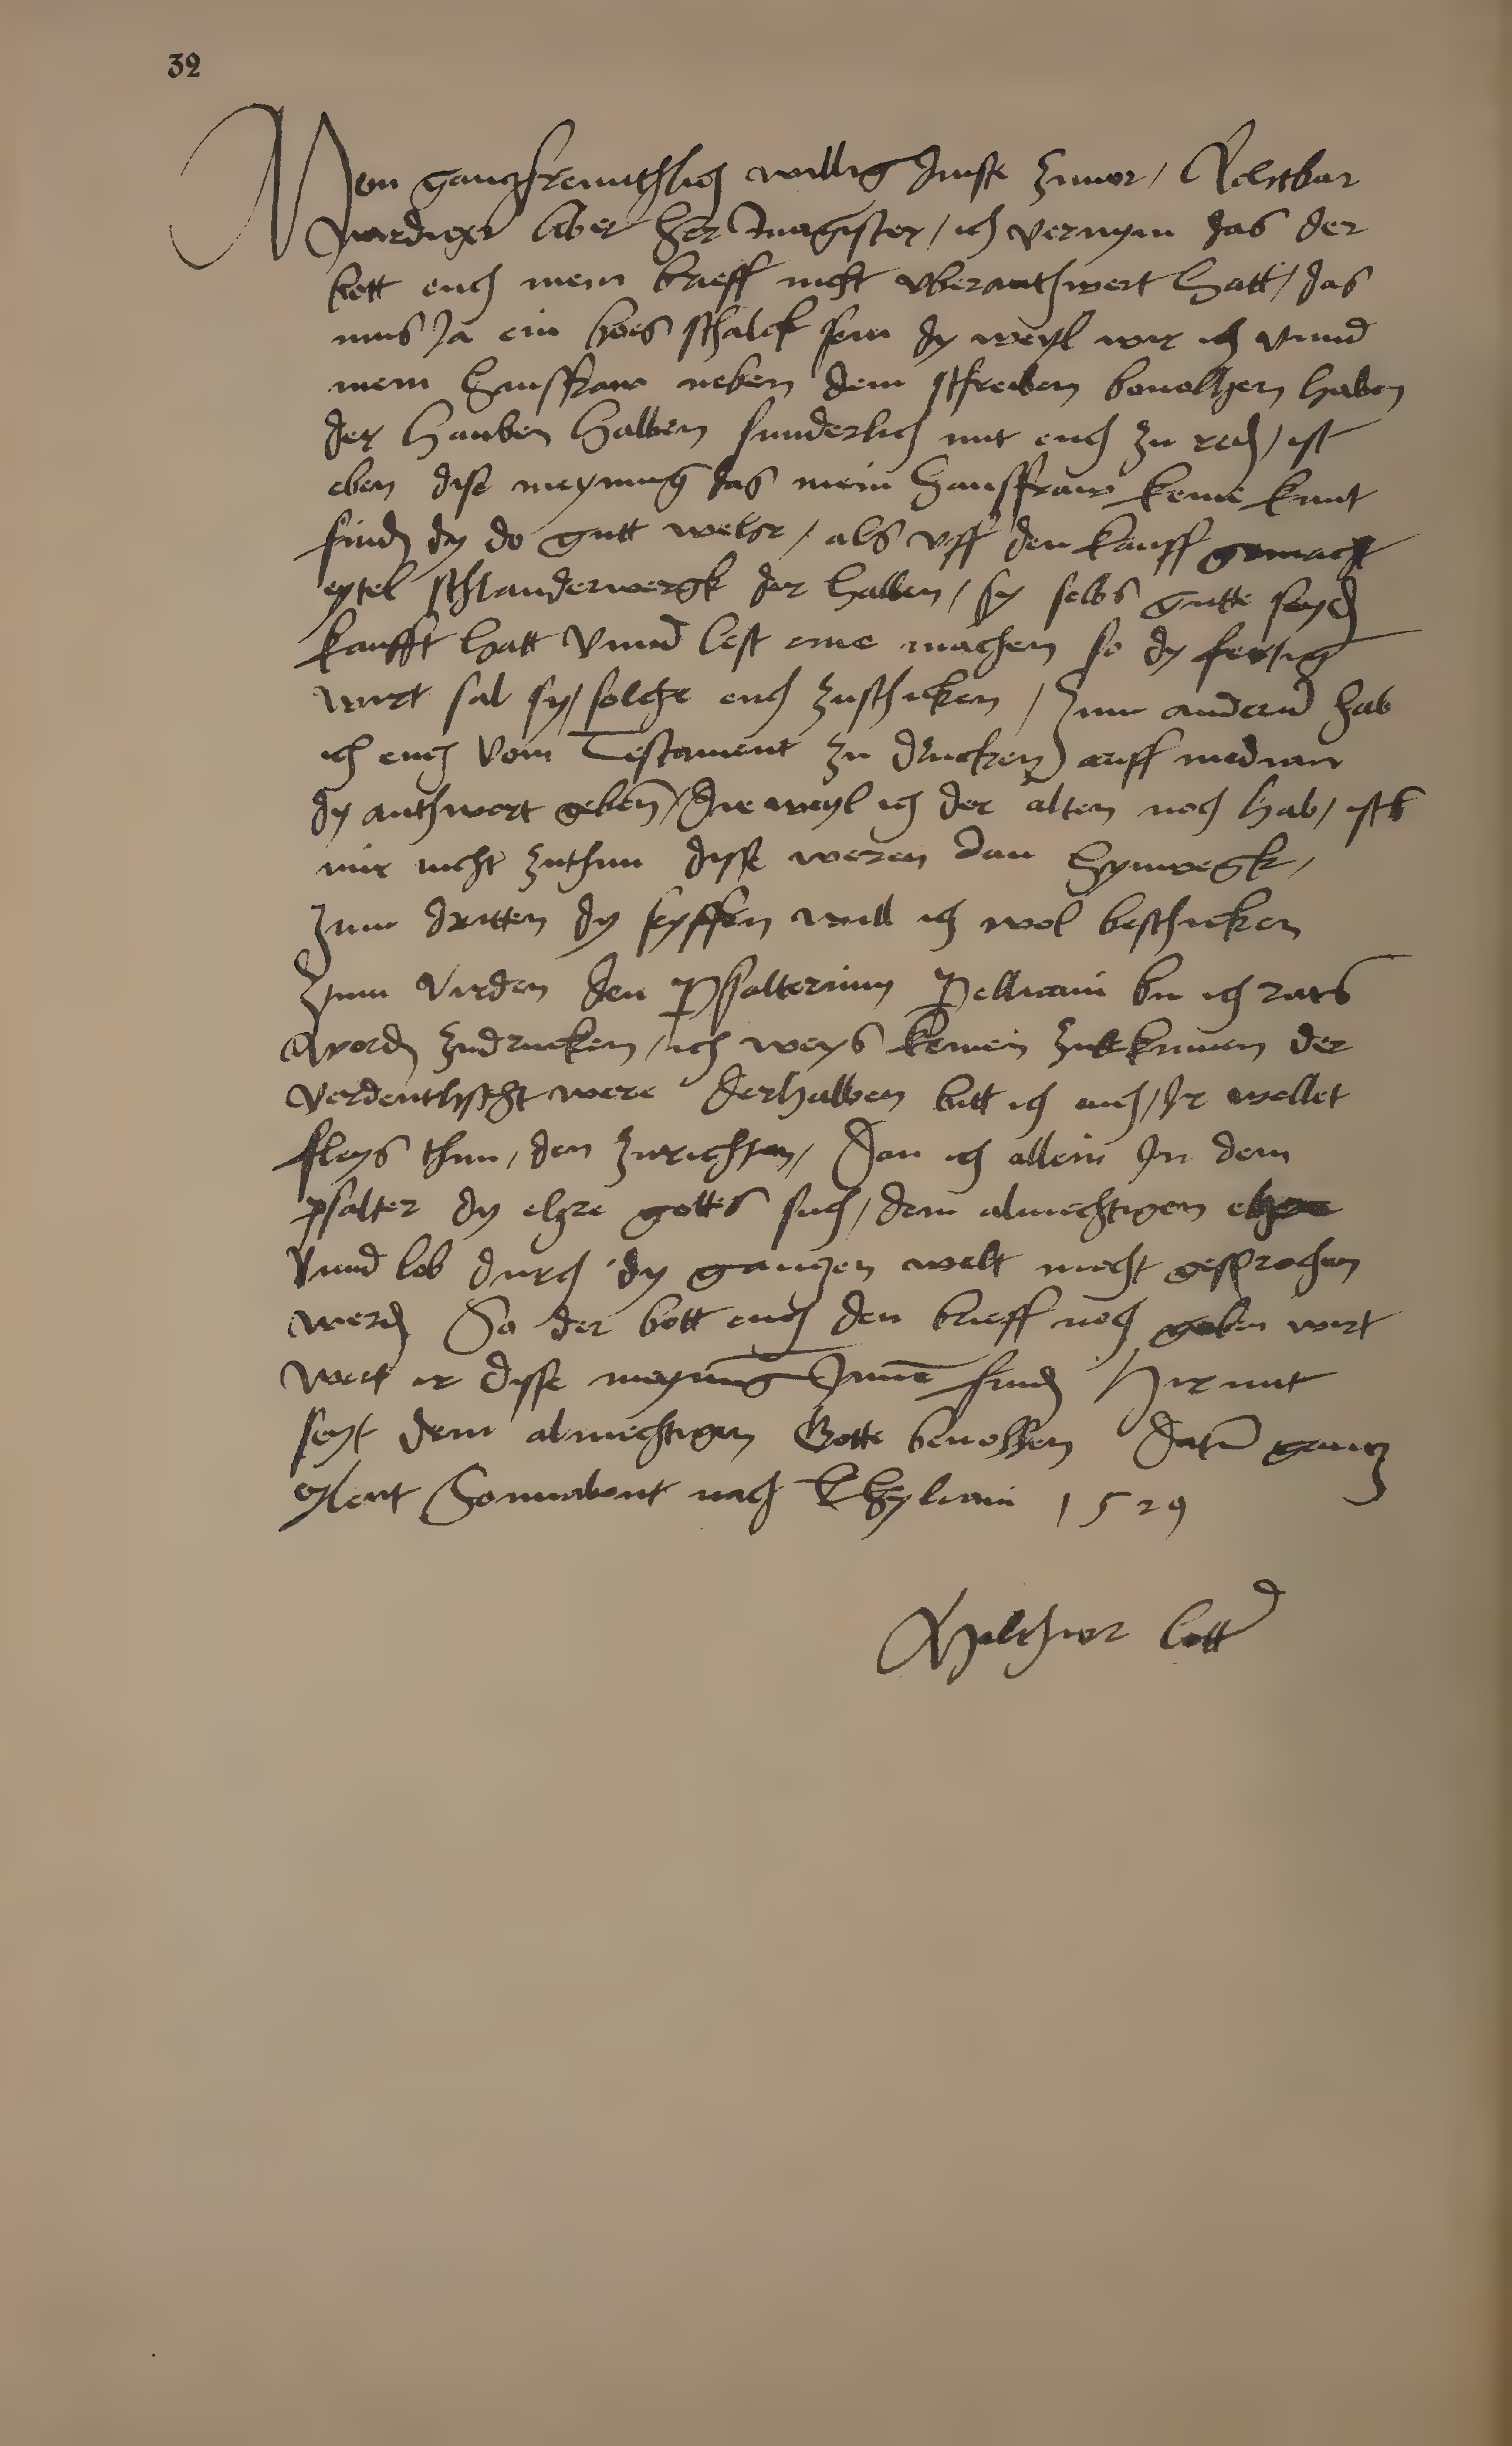 32
Mein gantz freunthlich willig dinste zuuor / Achtbar
wirdiger liber her Magister / ich vernym das der
bott euch mein brieff nicht vberanthwert hatt / das
mus Ja ein boes schalck sein dy weyl wir ich vnnd
mein hausfraw neben dem schreiben beuolhen haben
der hauben halben sunderlich mit euch zu red / ist
eben dise meynung das mein hausfraw keine kunt
find dy do gutt wehr / als vff den kauff gemacht
eytel schlauderwergk der halben / sy selbs gutte seyd
kaufft hatt vnnd lest eine machen so dy fertig
wirt sal sy / solche euch zuschicken / Zum andernn hab
ich euch vom Testament zu drucken auff median
dy anthwort geben / die weyl ich der alten noch hab / ists
mir nicht zuthun disse weren dan hynwegk /
Zum dritten dy seyffen will ich wol beschicken
Zum virden den Psalterium Pellicani bin ich rats
word zudrucken / ich weys keinen zubekumen der
verdeutscht were derhalben bitt ich euch / Ir wellet
fleys thun / den zurichten / dan ich allein In dem
psalter dy ehre gottes such / dem almechtigen ehre
vnnd lob durch dy gantzen welt mocht gesprochen
werd So der bott euch den brieff noch geben wirt
wert ir disse meynung Inne find Hir mit
seyt dem almechtigen Gotte beuolhen Datum gantz
eylent Sonnabent nach Kyliani 1529
Melchior Lotther